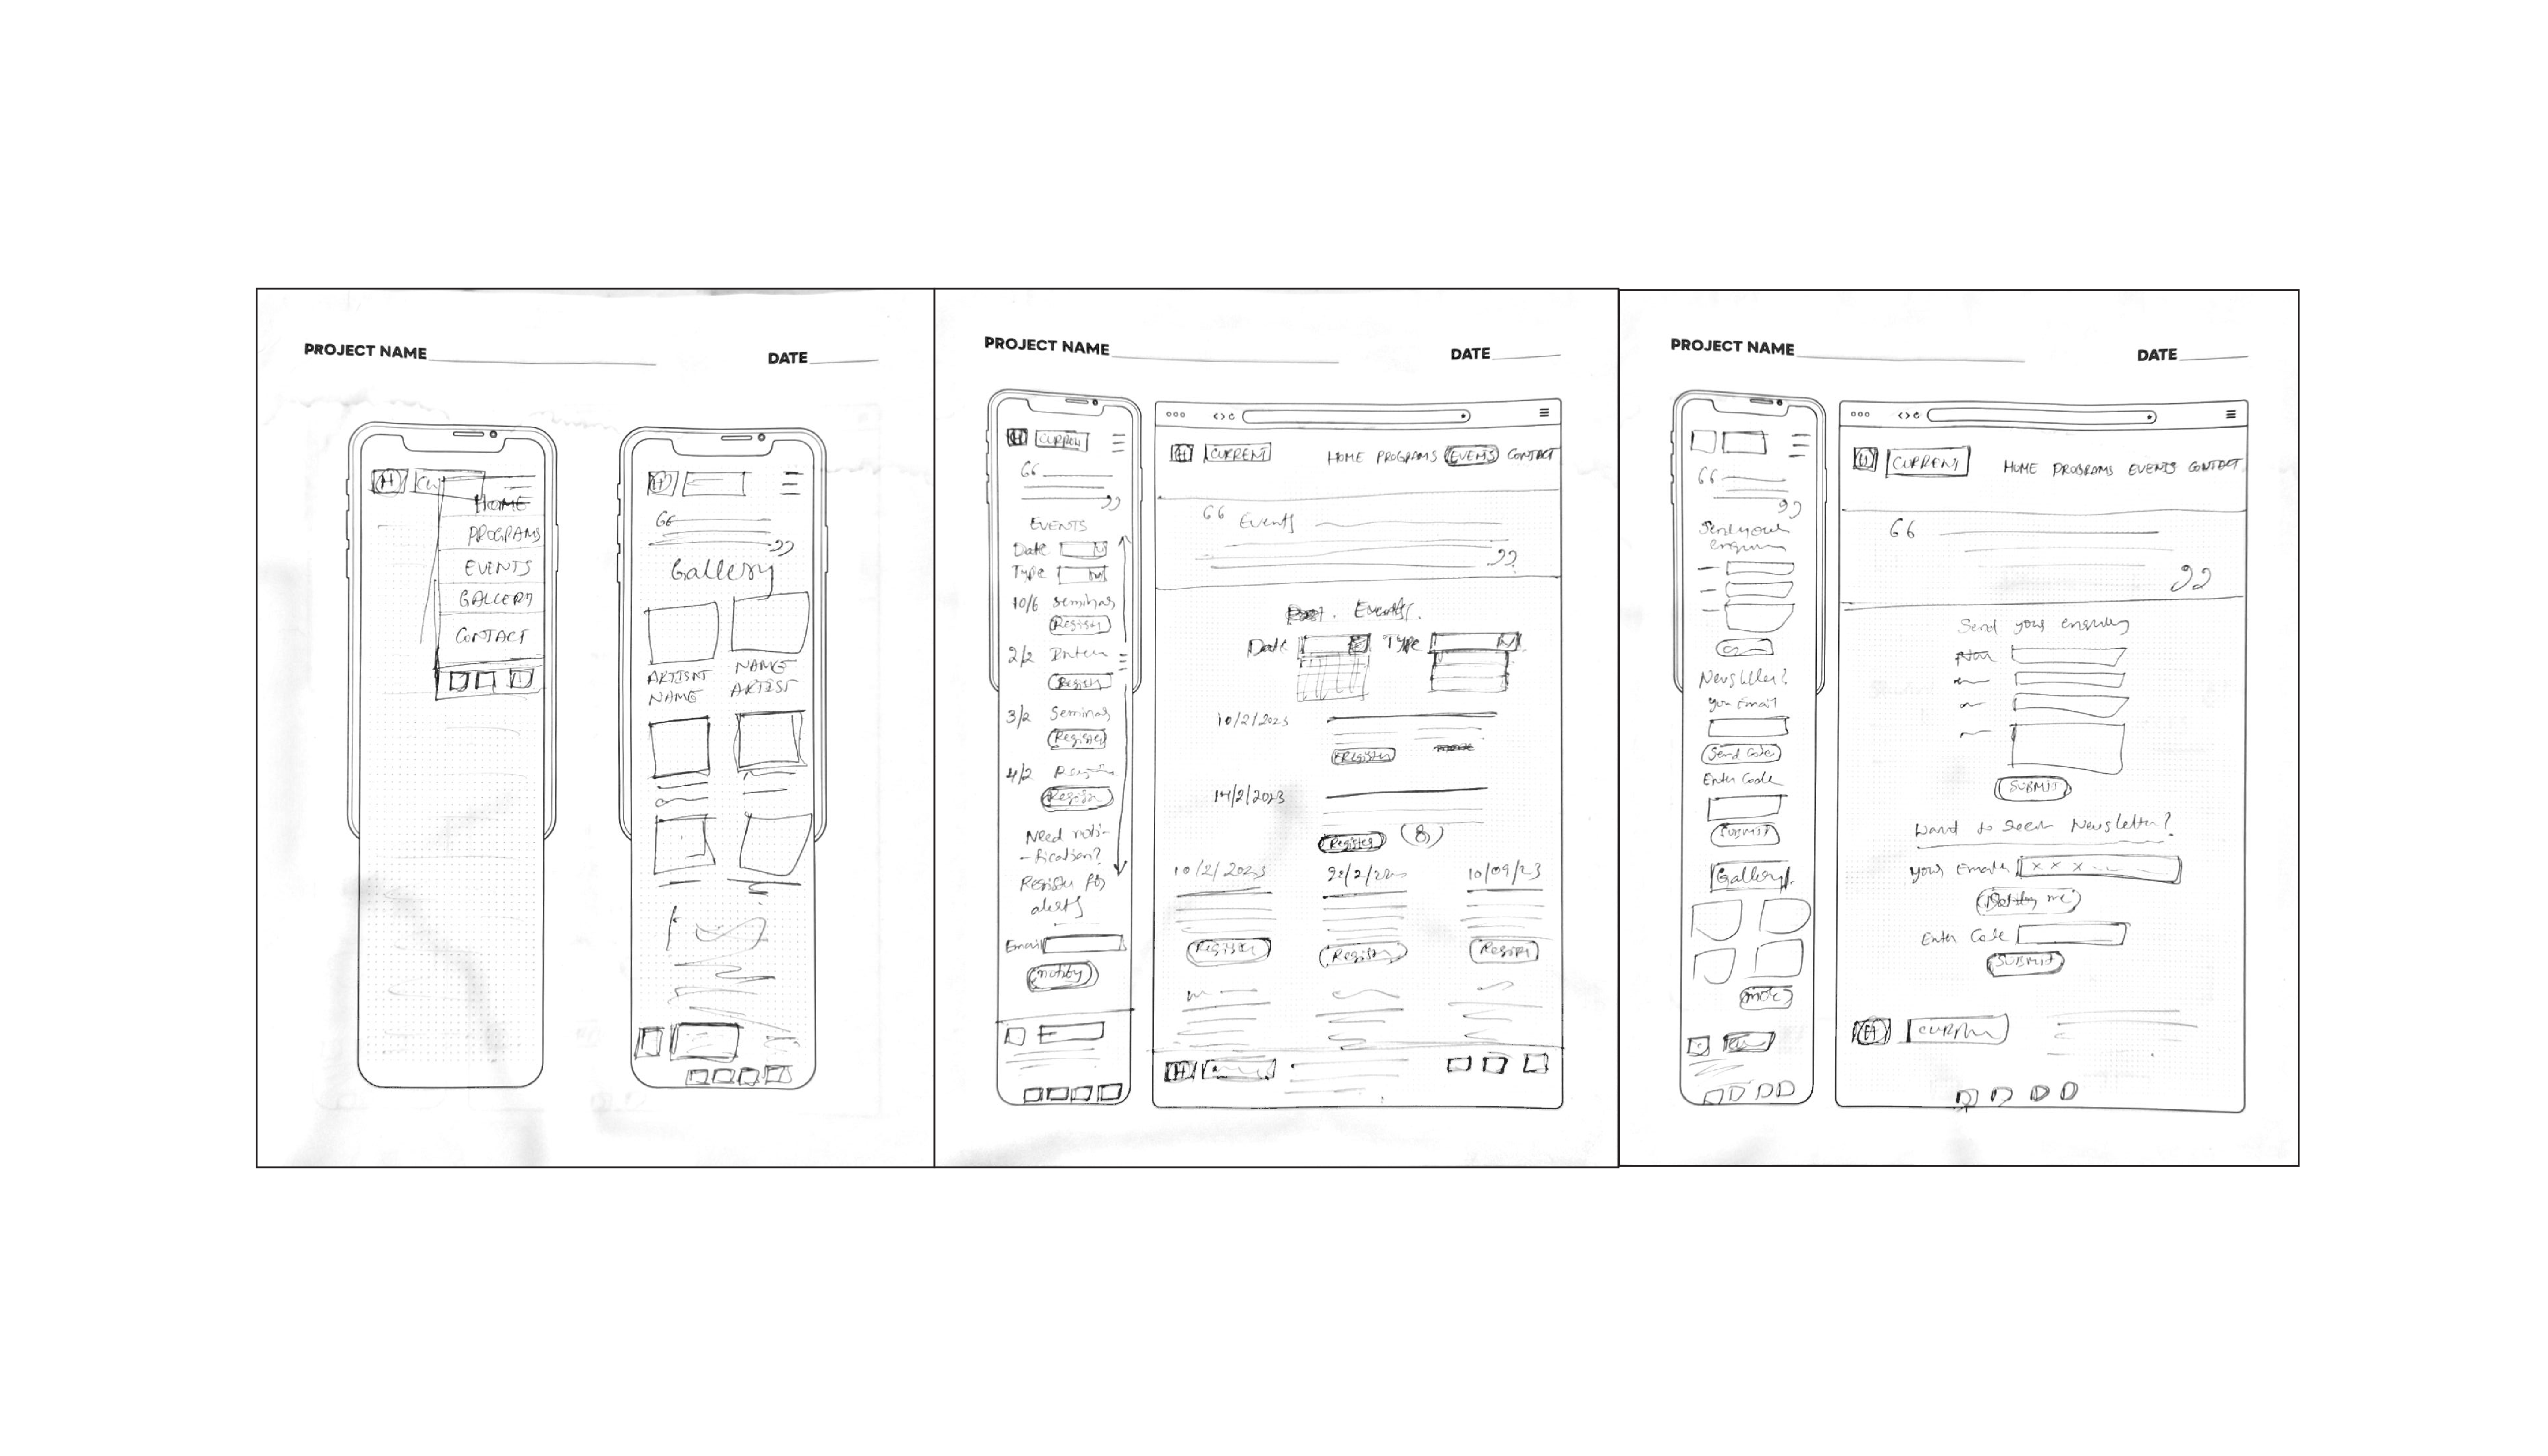 PROJECT NAME
DATE
HOME
PROGRAMS
EVENTS
GALLERY
CONTACT
Gallery
ARTISNT
NAME
NAME
ARTIST
PROJECT NAME
DATE
EVENTS
Date
Type
10/6 Seminar
Register
2/2
Register
3/2 Seminar
Register
4/2
Register
Need noti-
-fication?
Register for
alerts
Email
notify
CURRENT
HOME PROGRAMS EVENTS CONTACT
66 Events
99
Events
Date Type
10/2/2023
Register
14/2/2023
Register (8)
10/2/2023 10/09/23
Register Register Register
PROJECT NAME
DATE
66
99
Send your
enquiry
Newsletter?
your Email
Send Code
Enter Code
SUBMIT
Gallery
more
CURRENT
HOME PROGRAMS EVENTS CONTACT
66
99
Send your enquiry
SUBMIT
Want to Newsletter?
your Email x x x
me
Enter Code
SUBMIT